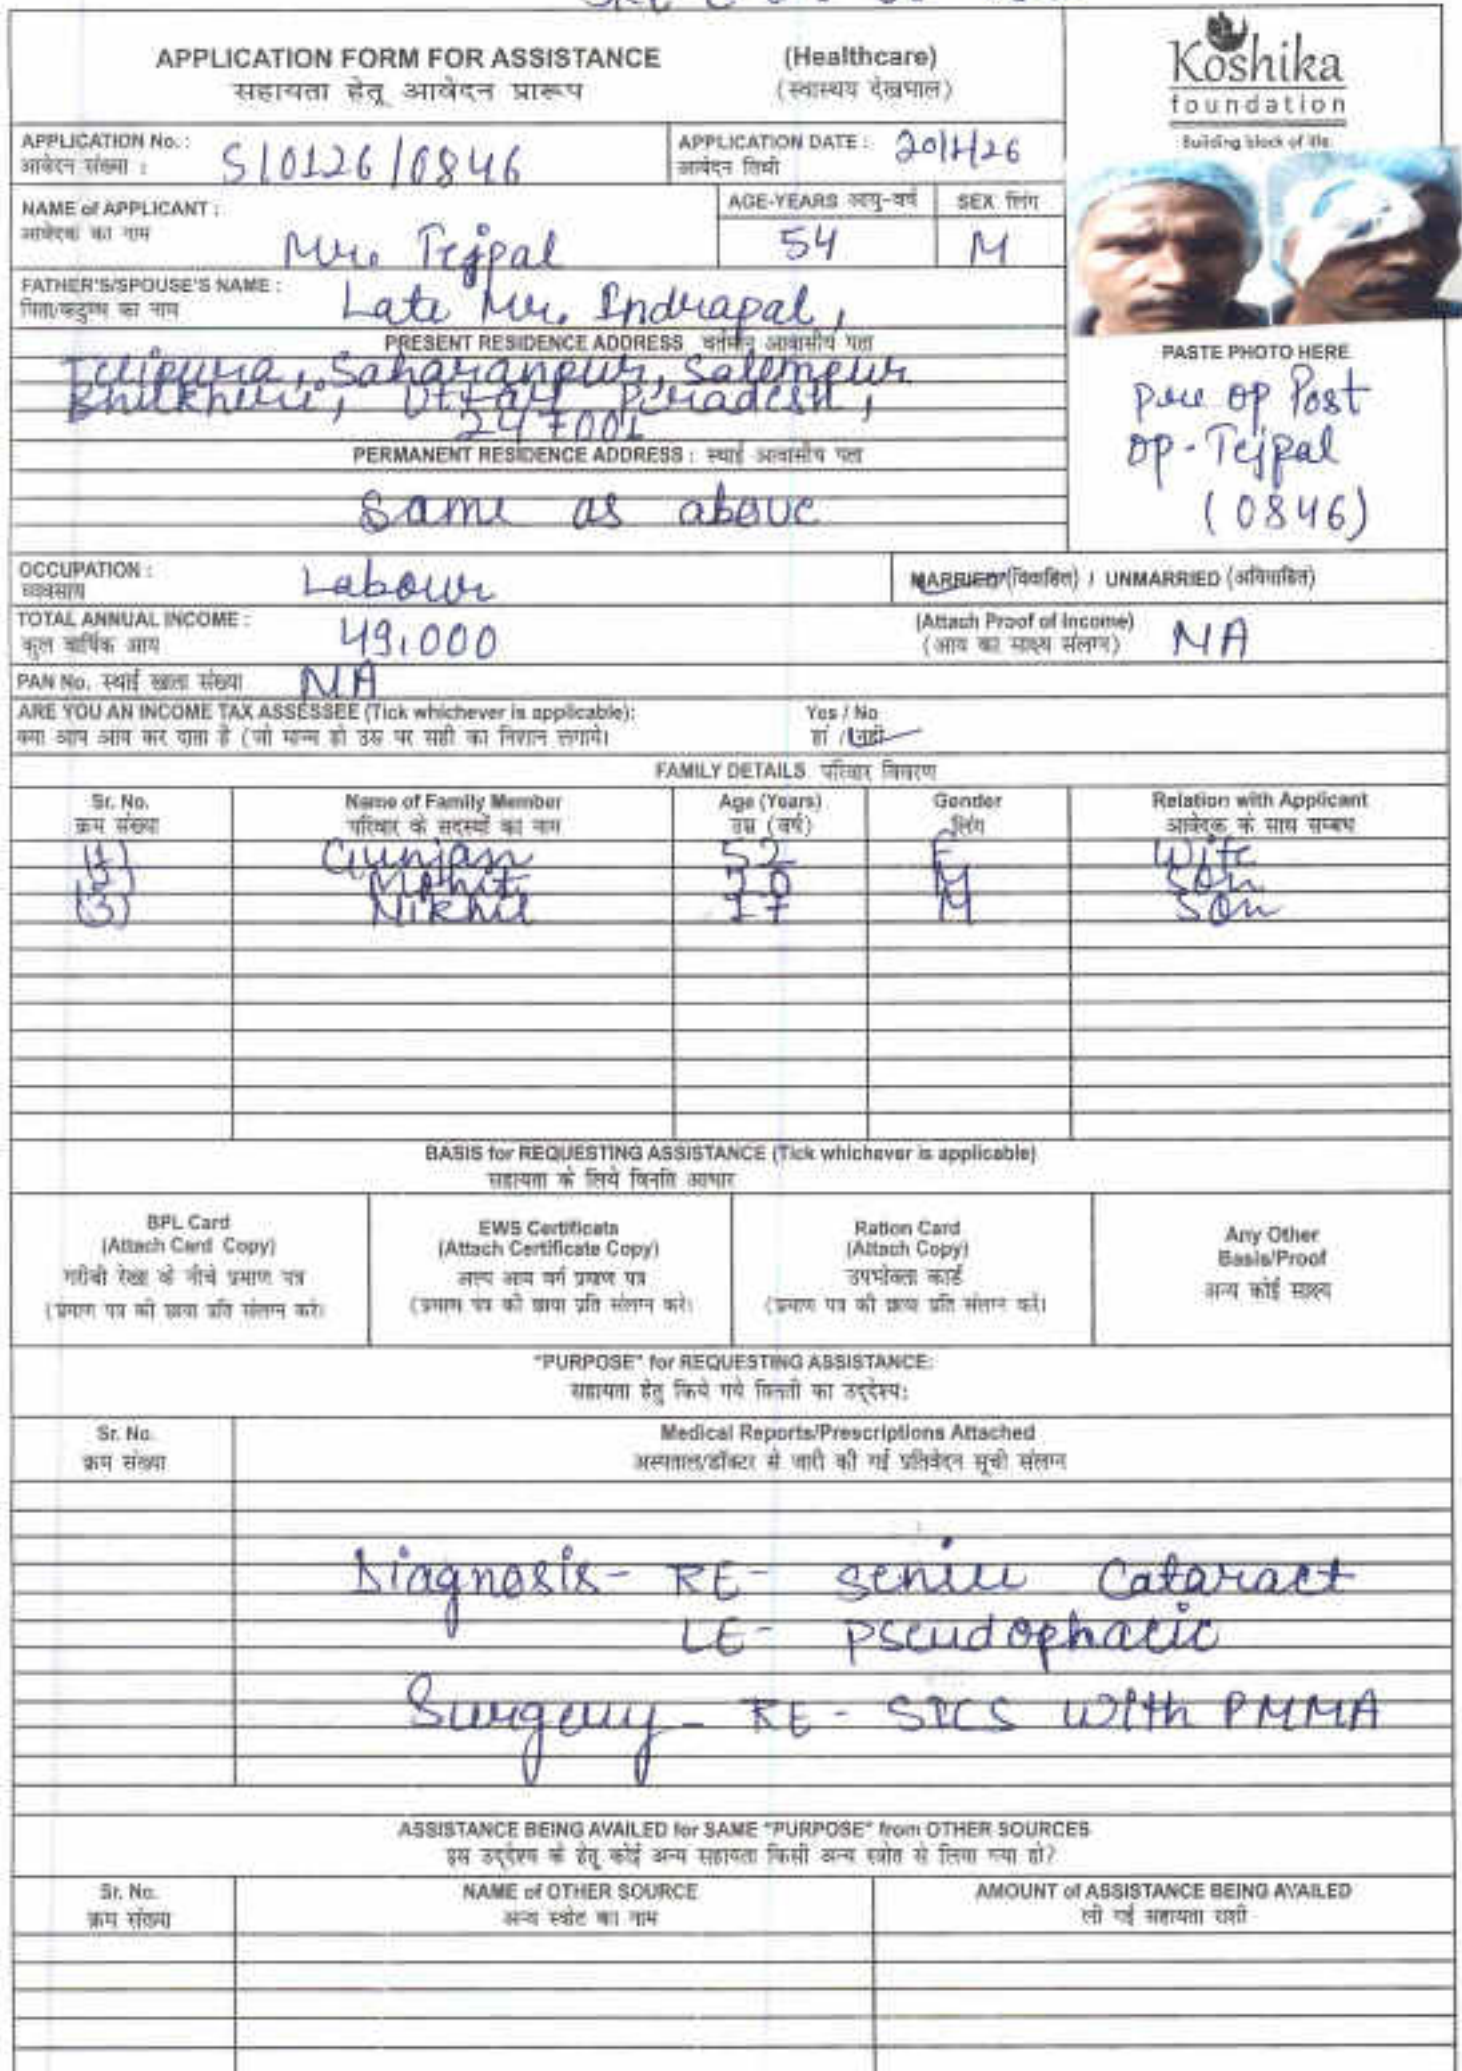 APPLICATION FORM FOR ASSISTANCE (Healthcare)
सहायता हेतू आवेदन प्रारूप (स्वास्थय देखभाल)
Koshika
foundation
Building block of life.
APPLICATION No. : S/0126/0846 APPLICATION DATE : 20/1/26
आवेदन संख्या : आवेदन तिथी
NAME of APPLICANT : Mr. Tejpal AGE-YEARS आयु-वर्ष 54 SEX लिंग M
आवेदक का नाम
FATHER'S/SPOUSE'S NAME : Late Mr. Indrapal,
पिता/कटुम्ब का नाम
PRESENT RESIDENCE ADDRESS वर्तमान आवासीय पता
Telipura, Saharanpur, Salempur
Bhilkheri, Uttar Pradesh,
247001
PERMANENT RESIDENCE ADDRESS : स्थाई आवासीय पता
Same as above
PASTE PHOTO HERE
Pre op Post
op - Tejpal
(0846)
OCCUPATION : Labour MARRIED (विवाहित) / UNMARRIED (अविवाहित)
व्यवसाय
TOTAL ANNUAL INCOME : 49,000 (Attach Proof of Income) NA
कुल वार्षिक आय (आय का साक्ष्य संलग्न)
PAN No. स्थाई खाता संख्या NA
ARE YOU AN INCOME TAX ASSESSEE (Tick whichever is applicable): Yes / No
क्या आप आय कर दाता है (जो मान्य हो उस पर सही का निशान लगाये। हां / नहीं
FAMILY DETAILS परिवार विवरण
Sr. No. Name of Family Member Age (Years) Gender Relation with Applicant
क्रम संख्या परिवार के सदस्यों का नाम उम्र (वर्ष) लिंग आवेदक के साथ सम्बध
(1) Gunjan 52 F Wife
(2) Mohit 20 M Son
(3) Nikhil 17 M Son
BASIS for REQUESTING ASSISTANCE (Tick whichever is applicable)
सहायता के लिये विनति आधार
BPL Card
(Attach Card Copy)
गरीबी रेखा के नीचे प्रमाण पत्र
(प्रमाण पत्र की छाया प्रति संलग्न करे।
EWS Certificate
(Attach Certificate Copy)
अल्प आय वर्ग प्रमाण पत्र
(प्रमाण पत्र की छाया प्रति संलग्न करे।
Ration Card
(Attach Copy)
उपभोक्ता कार्ड
(प्रमाण पत्र की छाया प्रति संलग्न करे।
Any Other
Basis/Proof
अन्य कोई साक्ष्य
"PURPOSE" for REQUESTING ASSISTANCE:
सहायता हेतु किये गये विनती का उद्देश्य:
Sr. No. Medical Reports/Prescriptions Attached
क्रम संख्या अस्पताल/डॉक्टर से जारी की गई प्रतिवेदन सूची संलग्न
Diagnosis - RE - Senile Cataract
LE - Pseudophacic
Surgery - RE - SICS with PMMA
ASSISTANCE BEING AVAILED for SAME "PURPOSE" from OTHER SOURCES
इस उद्देश्य के हेतू कोई अन्य सहायता किसी अन्य स्त्रोत से लिया गया हो?
Sr. No. NAME of OTHER SOURCE AMOUNT of ASSISTANCE BEING AVAILED
क्रम संख्या अन्य स्त्रोट का नाम ली गई सहायता राशी